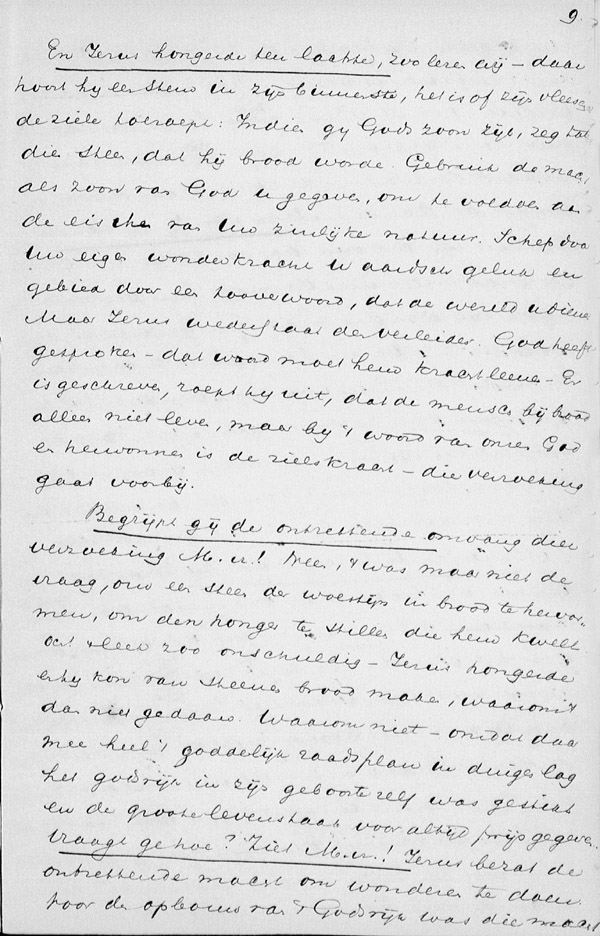 9.
En Jezus hongerde ten laatste, zoo lezen wij – daar
hoort hij een stem in zijn binnenste, het is of zijn vleesch
de ziele toeroept: Indien gij Gods zoon zijt, zeg tot
dien steen, dat hij brood worde. Gebruik de macht
als zoon van God u gegeven, om te voldoen aan
de eischen van uw zinlijke natuur. Schep door
uw eigen wonderkracht u aardsch geluk en
gebied door een tooverwoord, dat de wereld u diene
Maar Jezus wederstaat den verleider. God heeft
gesproken – dat woord moet hem kracht leenen – Er
is geschreven, roept hij uit, dat de mensch bij brood
alleen niet leve, maar bij 't woord van onzen God
en herwonnen is de zielskracht – die verzoeking
gaat voorbij.
Begrijpt gij de ontzettende omvang dier
verzoeking M. v.! Neen, 't was maar niet de
vraag, om een steen der woestijn in brood te hervor-
men, om den honger te stillen die hem kwelt
Och 't leek zoo onschuldig – Jezus hongerde
en hij kon van steenen brood maken, waarom 't
dan niet gedaan. Waarom niet – omdat daar
mee heel 't goddelijk raadsplan in duigen lag
het godsrijk in zijn geboorte zelf was gestikt
en de groote levenstaak voor altijd prijs gegeven.
Vraagt ge hoe? Ziet M. v.! Jezus bezat de
ontzettende macht om wonderen te doen.
Voor den opbouw van 't Godsrijk was die macht